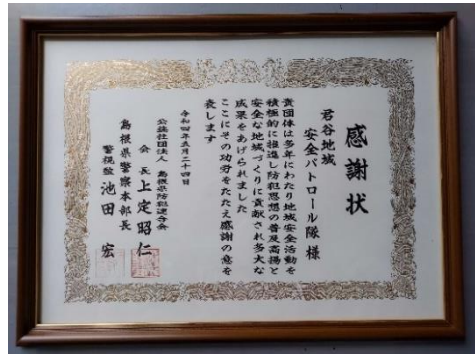 感謝状
君谷地域
安全パトロール隊 様
貴団体は多年にわたり地域安全活動を
積極的に推進し防犯思想の普及高揚と
安全な地域づくりに貢献され多大な
成果をあげられました
ここにその功労をたたえ感謝の意を
表します
令和四年五月二十四日
公益社団法人 島根県防犯連合会
会長 上定昭仁
島根県警察本部長
警視監 池田宏